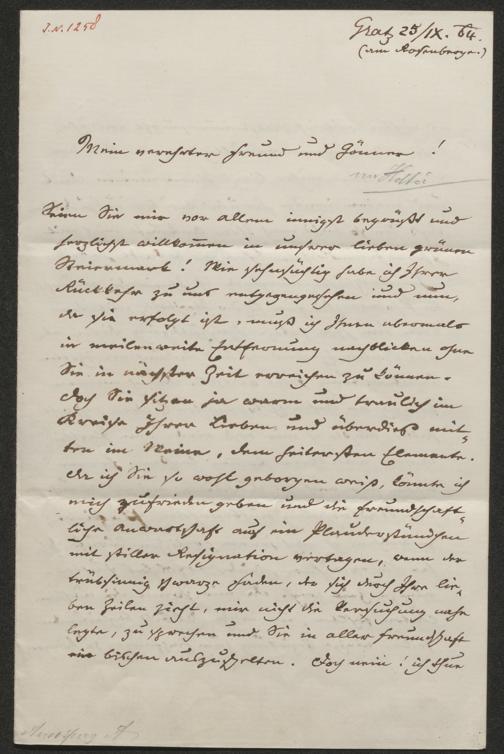 J.N. 1258
Graz 25/IX. 64.
(am Rosenberge.)
Mein verehrter Freund und Gönner!
an Holtei
Seien Sie mir vor allem innigst begrüßt und
herzlichst willkommen in unserer lieben grünen
Steiermark! Wie sehnsüchtig habe ich Ihrer
Rückkehr zu uns entgegengesehen und nun,
da sie erfolgt ist, muß ich Ihnen abermals
in meilenweite Entfernung nachblicken ohne
Sie in nächster Zeit erreichen zu können.
Doch Sie sitzen ja warm und traulich im
Kreise Ihrer Lieben und überdies mit-
ten im Weine, dem heitersten Elemente.
Da ich Sie so wohl geborgen weiß, könnte ich
mich zufrieden geben und die freundschaft-
liche Anwartschaft auf ein Plauderstündchen
mit stiller Resignation vertagen, wenn der
trübsinnig schwarze Faden, der sich durch Ihre lie-
ben Zeilen zieht, mir nicht die Versuchung nahe
legte, zu sprechen und Sie in aller Freundschaft
ein bischen auszuschelten. Doch nein! ich thue
Auersperg A